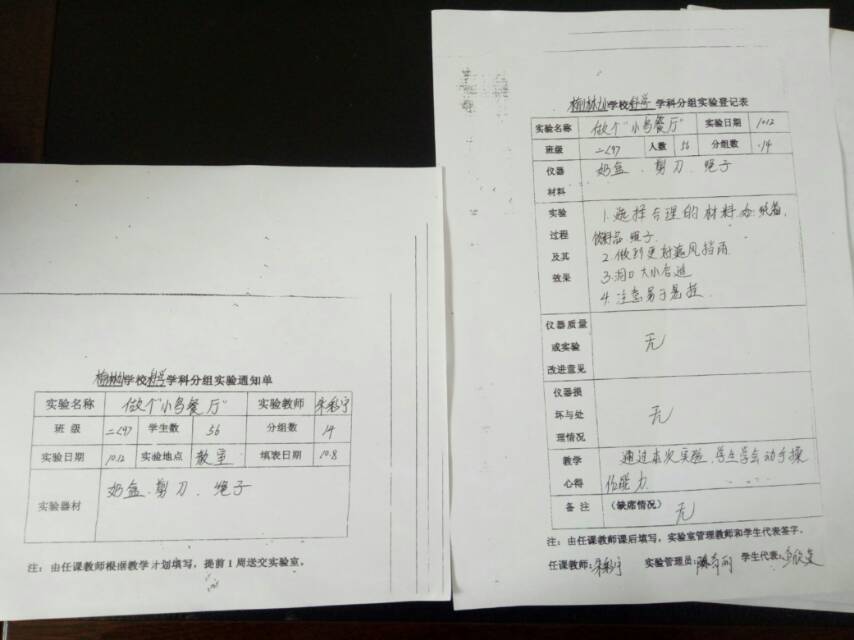 榆林小学校科学学科分组实验通知单
实验名称 做个"小鸟餐厅" 实验教师
班级 二<4> 学生数 56 分组数 14
实验日期 10.12 实验地点 教室 填表日期 10.8
实验器材 奶盒、剪刀、绳子
注：由任课教师根据教学计划填写，提前1周送交实验室。
学校科学学科分组实验登记表
实验名称 做个"小鸟餐厅" 实验日期 10.12
班级 二<4> 人数 56 分组数 14
仪器材料 奶盒、剪刀、绳子
实验过程及其效果
1.选择合理的材料
绳子
2.做到更好遮风挡雨
3.洞口大小合适
4.注意易于悬挂
仪器质量或实验改进意见 无
仪器损坏与处理情况 无
教学心得 通过本次实验，学生学会动手操作能力
备注 （缺席情况） 无
注：由任课教师课后填写，实验室管理教师和学生代表签字。
任课教师： 实验管理员： 学生代表：